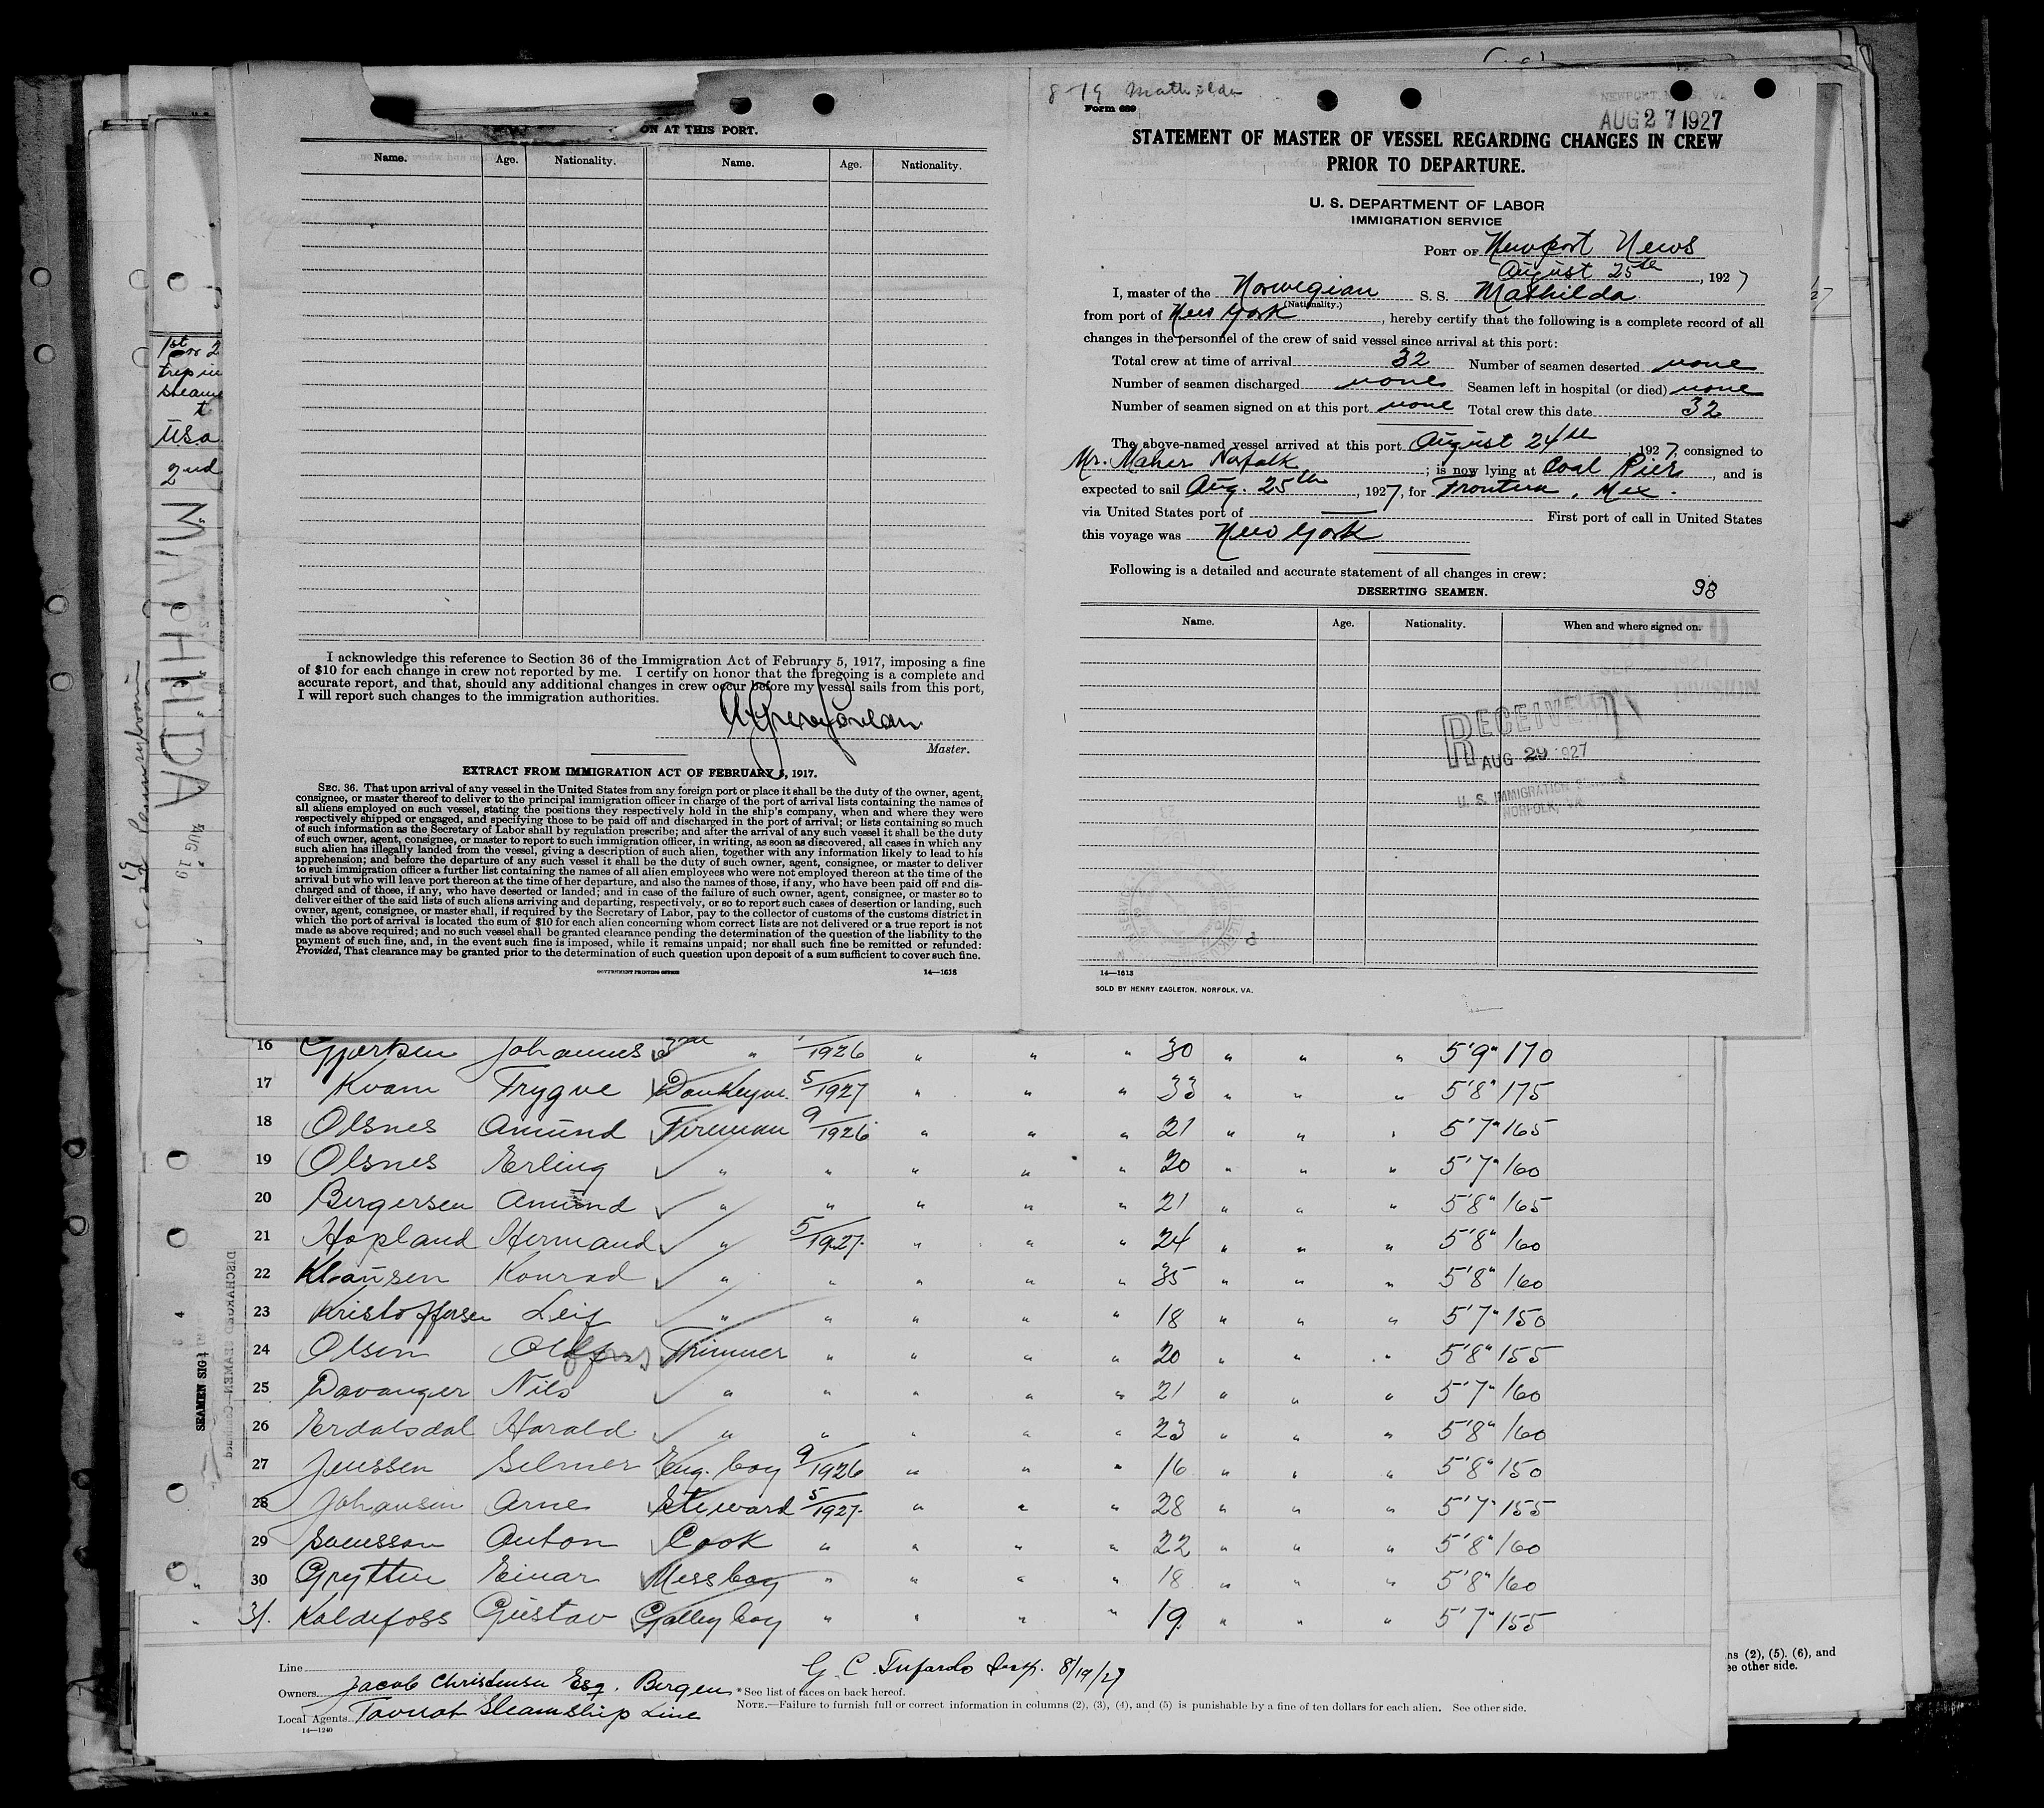 8-19 Mathilda
Form 689
NEWPORT NEWS, VA
AUG 27 1927
STATEMENT OF MASTER OF VESSEL REGARDING CHANGES IN CREW
PRIOR TO DEPARTURE.
U. S. DEPARTMENT OF LABOR
IMMIGRATION SERVICE
PORT OF Newport News
August 25th, 1927
I, master of the Norwegian S. S. Mathilda
(Nationality.)
from port of New York, hereby certify that the following is a complete record of all
changes in the personnel of the crew of said vessel since arrival at this port:
Total crew at time of arrival 32 Number of seamen deserted none
Number of seamen discharged none Seamen left in hospital (or died) none
Number of seamen signed on at this port none Total crew this date 32
The above-named vessel arrived at this port August 24th 1927, consigned to
Mr. Maher Norfolk; is now lying at Coal Pier, and is
expected to sail Aug. 25th, 1927, for Frontera, Mex.
via United States port of — First port of call in United States
this voyage was New York
Following is a detailed and accurate statement of all changes in crew:
98
DESERTING SEAMEN.
Name. Age. Nationality. When and where signed on.
DIVISION
RECEIVED
AUG 29 1927
U. S. IMMIGRATION SERVICE
NORFOLK, VA.
14—1613
SOLD BY HENRY EAGLETON, NORFOLK, VA.
ON AT THIS PORT.
Name. Age. Nationality. Name. Age. Nationality.
I acknowledge this reference to Section 36 of the Immigration Act of February 5, 1917, imposing a fine
of $10 for each change in crew not reported by me. I certify on honor that the foregoing is a complete and
accurate report, and that, should any additional changes in crew occur before my vessel sails from this port,
I will report such changes to the immigration authorities.
Master.
EXTRACT FROM IMMIGRATION ACT OF FEBRUARY 5, 1917.
SEC. 36. That upon arrival of any vessel in the United States from any foreign port or place it shall be the duty of the owner, agent,
consignee, or master thereof to deliver to the principal immigration officer in charge of the port of arrival lists containing the names of
all aliens employed on such vessel, stating the positions they respectively hold in the ship's company, when and where they were
respectively shipped or engaged, and specifying those to be paid off and discharged in the port of arrival; or lists containing so much
of such information as the Secretary of Labor shall by regulation prescribe; and after the arrival of any such vessel it shall be the duty
of such owner, agent, consignee, or master to report to such immigration officer, in writing, as soon as discovered, all cases in which any
such alien has illegally landed from the vessel, giving a description of such alien, together with any information likely to lead to his
apprehension; and before the departure of any such vessel it shall be the duty of such owner, agent, consignee, or master to deliver
to such immigration officer a further list containing the names of all alien employees who were not employed thereon at the time of the
arrival but who will leave port thereon at the time of her departure, and also the names of those, if any, who have been paid off and dis-
charged and of those, if any, who have deserted or landed; and in case of the failure of such owner, agent, consignee, or master so to
deliver either of the said lists of such aliens arriving and departing, respectively, or so to report such cases of desertion or landing, such
owner, agent, consignee, or master shall, if required by the Secretary of Labor, pay to the collector of customs of the customs district in
which the port of arrival is located the sum of $10 for each alien concerning whom correct lists are not delivered or a true report is not
made as above required; and no such vessel shall be granted clearance pending the determination of the question of the liability to the
payment of such fine, and, in the event such fine is imposed, while it remains unpaid; nor shall such fine be remitted or refunded:
Provided, That clearance may be granted prior to the determination of such question upon deposit of a sum sufficient to cover such fine.
GOVERNMENT PRINTING OFFICE 14—1613
1st or 2
trip in
steam
t
USA
2nd
MATHILDA
AUG 19
16 Gjertsen Johannes 3rd " 1926 " " " 30 " " " 5'9" 170
17 Kvam Trygve Donkeym. 5/1927 " " " 33 " " " 5'8" 175
18 Olsnes Amund Fireman 9/1926 " " " 21 " " " 5'7" 165
19 Olsnes Erling " " " " " 20 " " " 5'7" 160
20 Bergersen Amund " " " " " 21 " " " 5'8" 165
21 Hopland Hermand " 5/1927 " " " 24 " " " 5'8" 160
22 Klausen Konrad " " " " " 35 " " " 5'8" 160
23 Kristoffersen Leif " " " " " 18 " " " 5'7" 150
24 Olsen Trimmer " " " " 20 " " " 5'8" 155
25 Davanger Nils " " " " " 21 " " " 5'7" 160
26 Erdalsdal Harald " " " " " 23 " " " 5'8" 160
27 Jenssen Selmer Eng. boy 9/1926 " " " 16 " " " 5'8" 150
28 Johansen Arne Steward 5/1927 " " " 28 " " " 5'7" 155
29 Svensson Anton Cook " " " " 22 " " " 5'8" 160
30 Gryttin Einar Messboy " " " " 18 " " " 5'8" 160
31. Kaldefoss Gustav Galley boy " " " " 19 " " " 5'7" 155
SEAMEN SIG
DISCHARGED SEAMEN—Continued
Line
G. C. Tufarolo Insp. 8/19/27
Owners Jacob Christensen Esq. Bergen
* See list of races on back hereof.
NOTE.—Failure to furnish full or correct information in columns (2), (3), (4), and (5) is punishable by a fine of ten dollars for each alien. See other side.
Local Agents Steamship Line
14—1240
ns (2), (5). (6), and
ee other side.